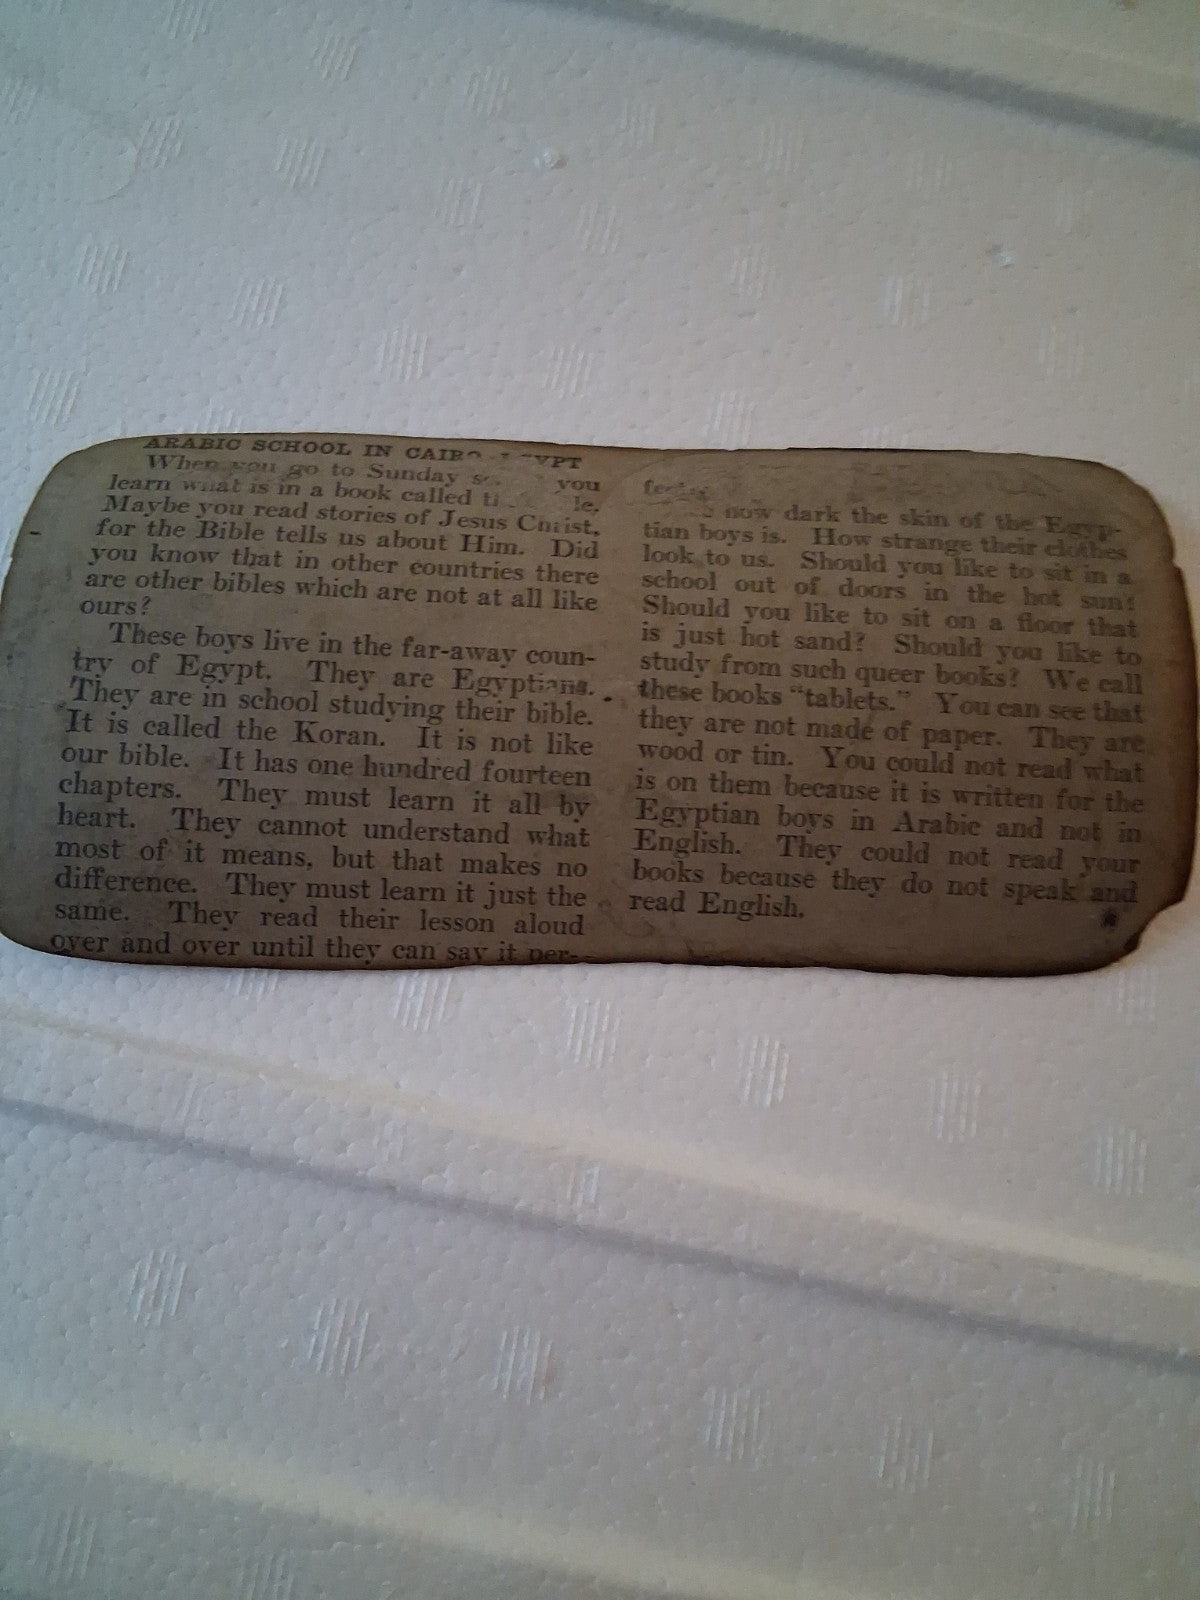 ARABIC SCHOOL IN
When you go to Sunday you
learn what is in a book called
Maybe you read stories of Jesus Christ,
for the Bible tells us about Him. Did
you know that in other countries there
are other bibles which are not at all like
ours?
These boys live in the far-away coun-
try of Egypt. They are Egyptians.
They are in school studying their bible.
It is called the Koran. It is not like
our bible. It has one hundred fourteen
chapters. They must learn it all by
heart. They cannot understand what
most of it means, but that makes no
difference. They must learn it just the
same. They read their lesson aloud
over and over until they can say it per-
how dark the skin of the Egyp-
tian boys is. How strange their clothes
look to us. Should you like to sit in a
school out of doors in the hot sun?
Should you like to sit on a floor that
is just hot sand? Should you like to
study from such queer books? We call
these books “tablets.” You can see that
they are not made of paper. They are
wood or tin. You could not read what
is on them because it is written for the
Egyptian boys in Arabic and not in
English. They could not read your
books because they do not speak and
read English.